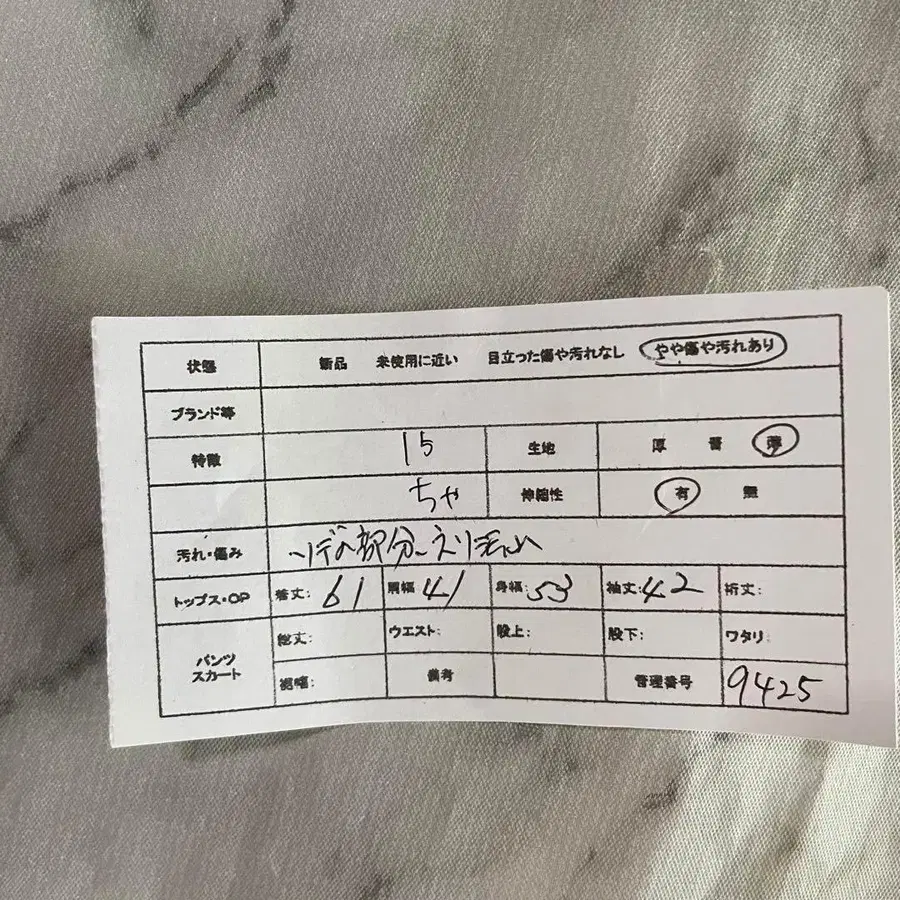 状態 新品 未使用に近い 目立った傷や汚れなし やや傷や汚れあり
ブランド等
特徴 15 生地 厚 普 薄
ちゃ 伸縮性 有 無
汚れ・傷み ソデの部分、えり
トップス・OP 着丈: 61 肩幅 41 身幅: 53 袖丈: 42 裄丈:
パンツ スカート 総丈: ウエスト: 股上: 股下: ワタリ:
裾幅: 備考 管理番号 9425